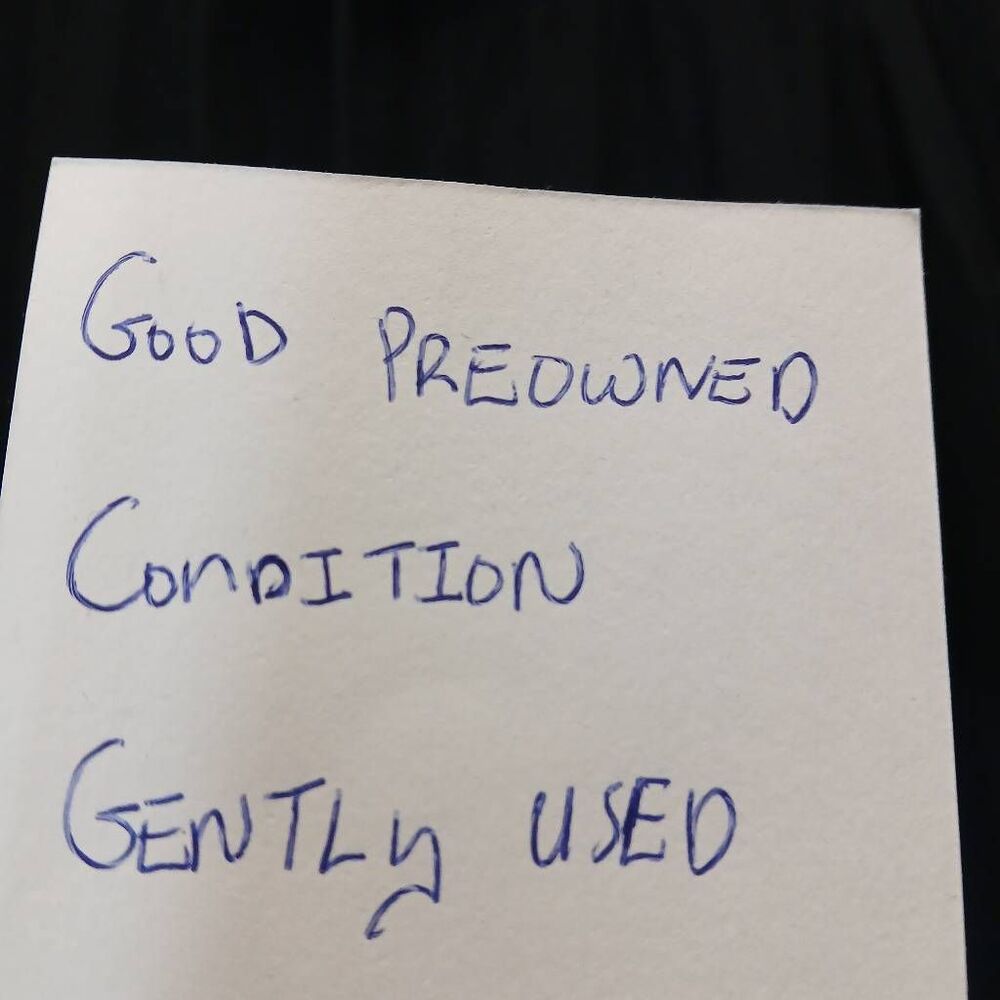 GOOD PREOWNED
CONDITION
GENTLY USED